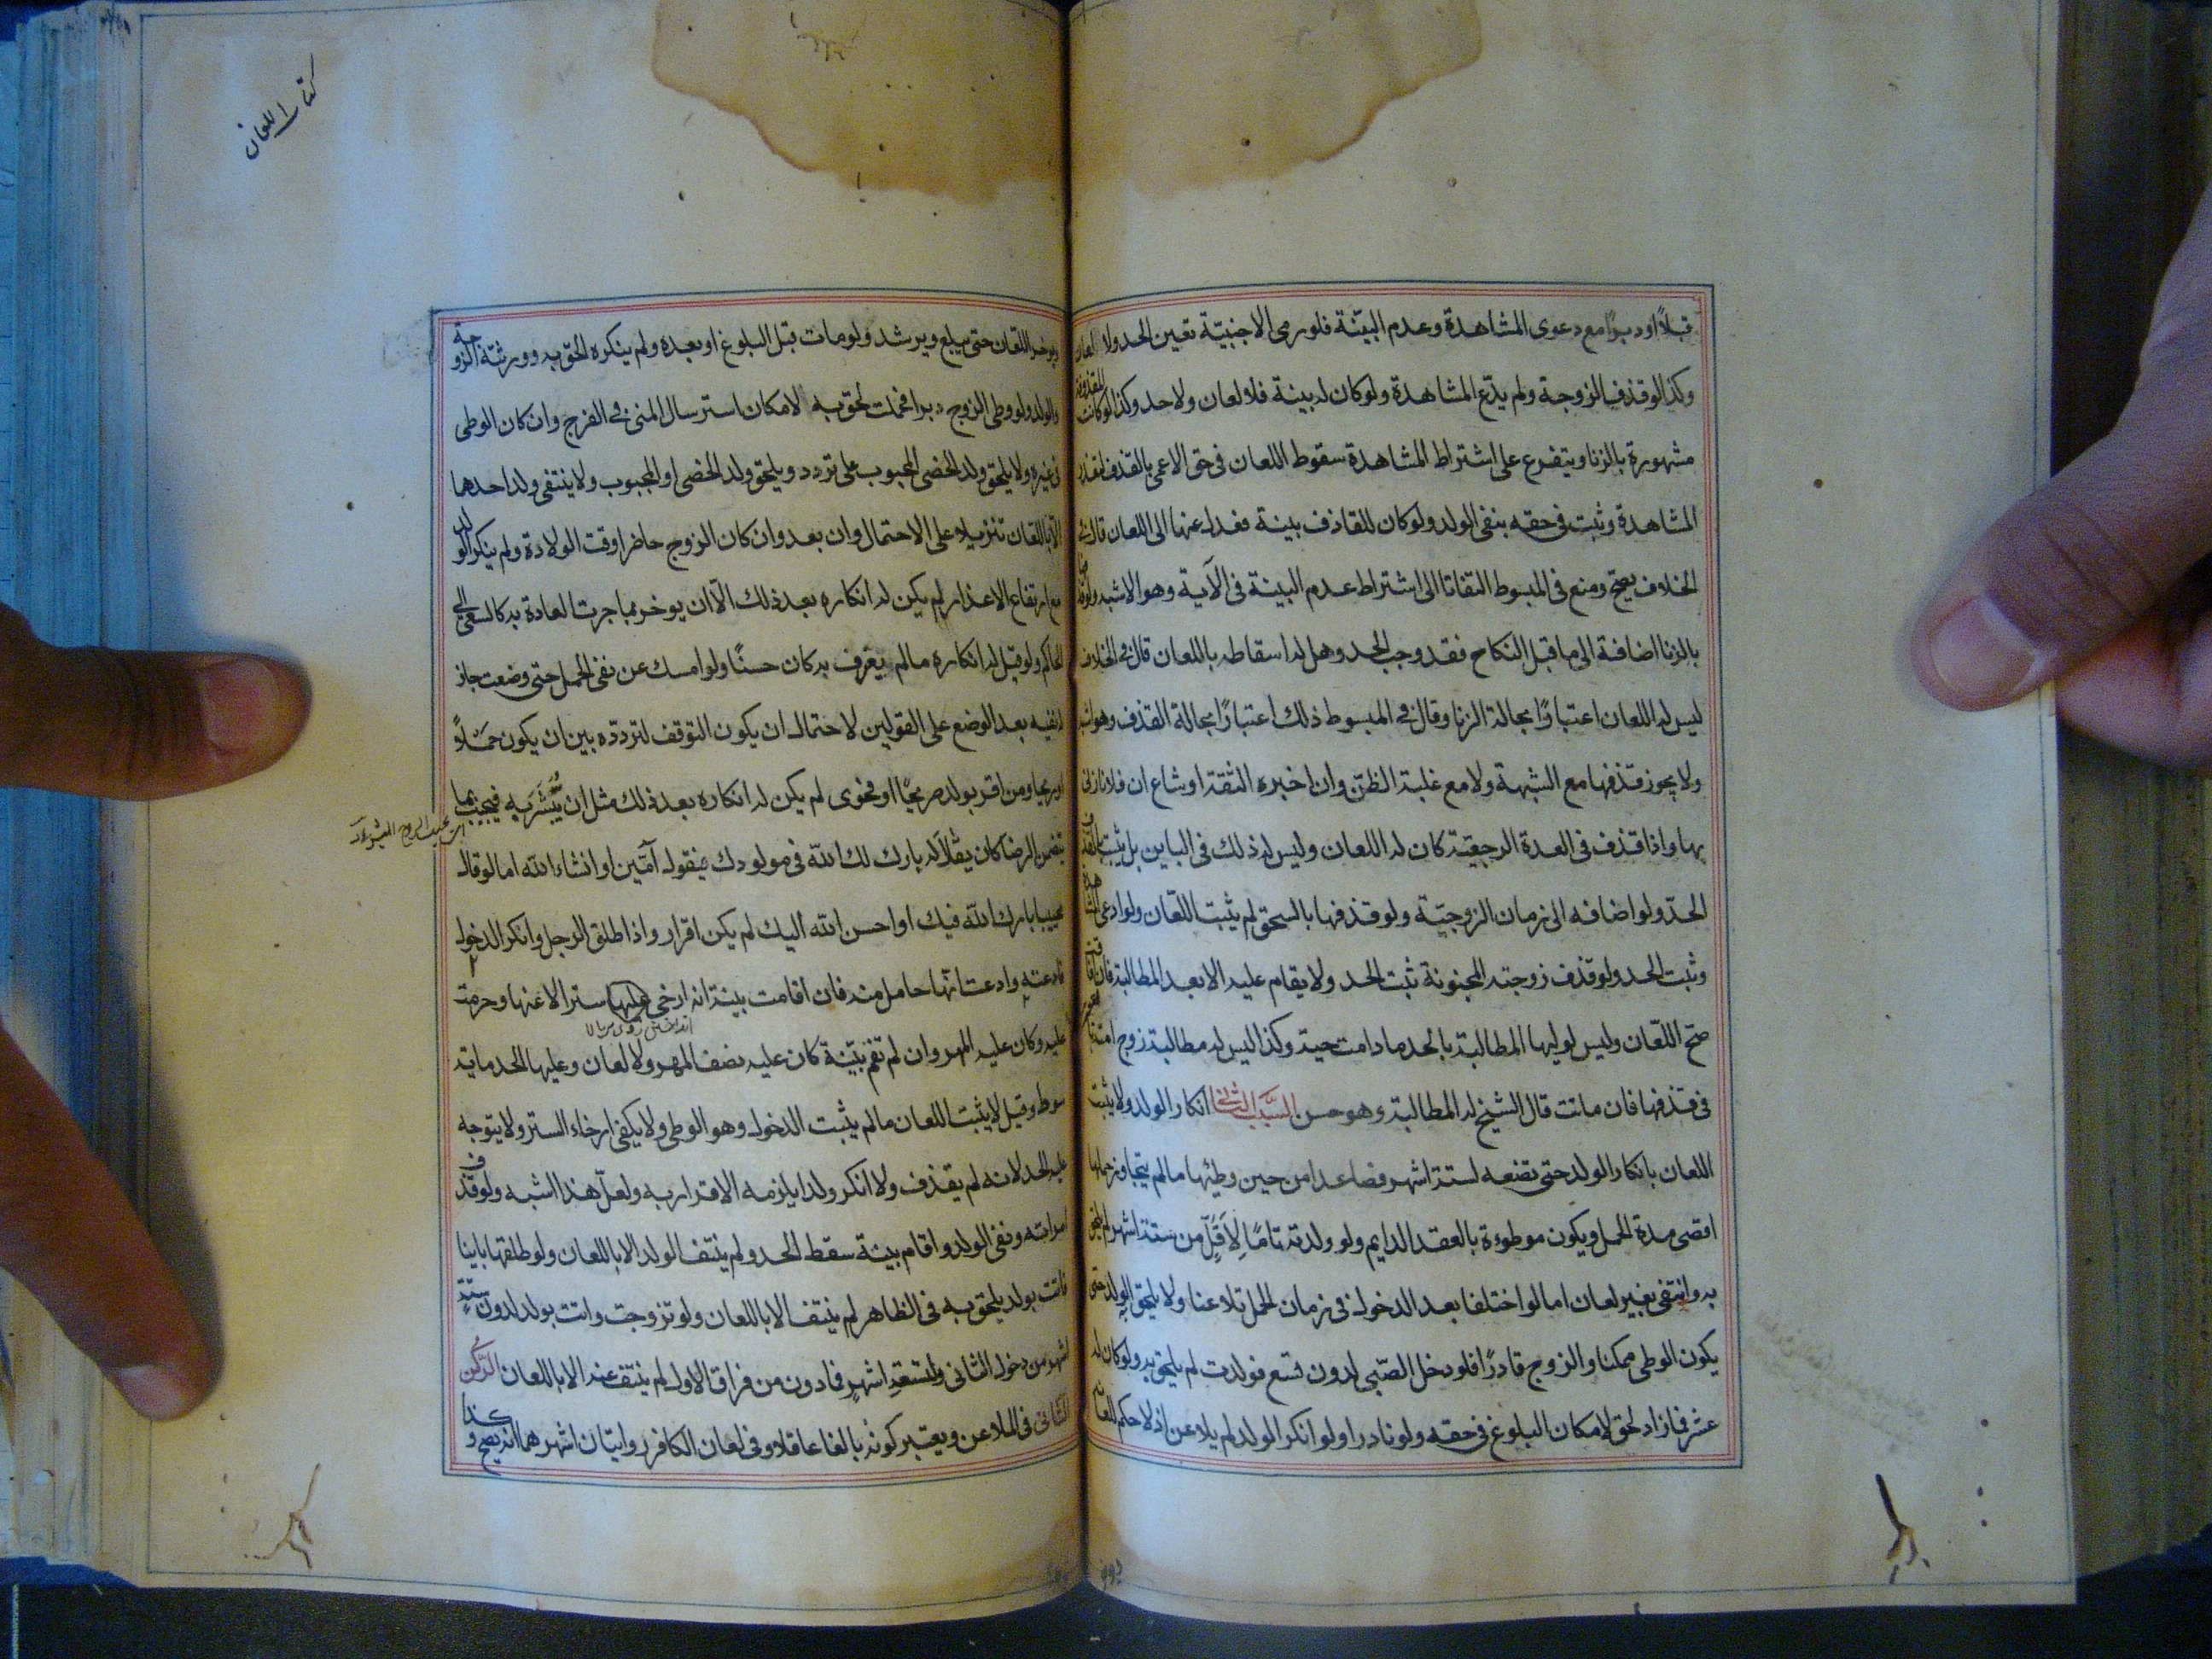 قبلاً او دبرًا مع دعوى المشاهدة وعدم البيّنة فلو رمى الاجنبيّة تعين الحد ولا لعان
وكذا لو قذف الزوجة ولم يدّع المشاهدة ولو كان له بينة فلا لعان ولا حد وكذا لو كانت المقذوفة
مشهورة بالزنا ويتفرع على اشتراط المشاهدة سقوط اللعان فى حق الاعمى بالقذف لتعذر
المشاهدة وثبت فى حقه بنفى الولد ولو كان للقاذف بينة فعدل عنها الى اللعان قال فى
الخلاف يصح ومنع فى المبسوط التفاتا الى اشتراط عدم البينة فى الآية وهو الاشبه ولو قذف
بالزنا اضافة الى ما قبل النكاح فقد وجب الحد وهل له اسقاطه باللعان قال فى الخلاف
ليس له اللعان اعتبارًا بحالة الزنا وقال فى المبسوط ذلك اعتبارًا بحالة القذف وهو اشبه
ولا يجوز قذفها مع الشبهة ولا مع غلبة الظن وان اخبره الثقة او شاع ان فلانا زنى
بها واذا قذف فى العدة الرجعية كان له اللعان وليس له ذلك فى الباين بل يثبت بالقذف
الحدّ ولو اضافه الى زمان الزوجيّة ولو قذفها بالسحق لم يثبت اللعّان ولو ادعى المشاهدة
وثبت الحد ولو قذف زوجته المجنونة ثبت الحد ولا يقام عليه الا بعد المطالبة فان افاقت
صحّ اللعّان وليس لوليها المطالبة بالحد ما دامت حية وكذا ليس له مطالبة زوج امته
فى قذفها فان ماتت قال الشيخ له المطالبة وهو حسن السَّبَب الثانى انكار الولد ولا يثبت
اللعان بانكار الولد حتى تضعه لستة اشهر فصاعدا من حين وطئها ما لم يتجاوز حملها
اقصى مدة الحمل ويكون موطوءة بالعقد الدايم ولو ولدته تامًا لاقلّ من ستة اشهر لم يلحق
به وانتفى بغير لعان اما لو اختلفا بعد الدخول فى زمان الحمل تلاعنا ولا يلحق الولد حتى
يكون الوطى ممكنا والزوج قادرًا فلو دخل الصّبى لدون تسع فولدت لم يلحق به ولو كان له
عشر فما زاد لحق لامكان البلوغ فى حقه ولو نادرا ولو انكر الولد لم يلاعن اذ لا حكم للعانه
كتاب اللعان
ويوخر اللعّان حتى يبلغ ويرشد ولو مات قبل البلوغ او بعده ولم ينكره الحق به وورثته الزوجة
والولد ولو وطى الزوج دبرا فحملت لحق به لامكان استرسال المنى فى الفرج وان كان الوطى
فى غيره ولا يلحق ولد الخصى المجبوب على تردد ويلحق ولد الخصى او المجبوب ولا ينتفى ولد احدهما
الّا باللعّان تنزيلا على الاحتمال وان بعد وان كان الزوج حاضرا وقت الولادة ولم ينكر الولد
مع ارتفاع الاعذار لم يكن له انكاره بعد ذلك الّا ان يوخر بما جرت العادة به كالسعى الى
الحاكم ولو قيل له انكاره ما لم يعرف به كان حسنًا ولو امسك عن نفى الحمل حتى وضعت جاز
له نفيه بعد الوضع على القولين لاحتمال ان يكون التوقف لتردده بين ان يكون حملاً
او ريحا ومن اقر بولد صريحًا او فحوى لم يكن له انكاره بعد ذلك مثل ان يُبَشَّرَ به فيجيب بما
يتضمن الرضا كان يقال له بارك لك الله فى مولودك فيقول آمّين او انشاء الله اما لو قال
مجيبا بارك الله فيك او احسن الله اليك لم يكن اقرار واذا طلق الرجل وانكر الدخول
فادعته وادعت انّها حامل منه فان اقامت بينة انه ارخى عليها سترا لاعنها وحرمت
عليه وكان عليه المهر وان لم تقم بيّنة كان عليه نصف المهر ولا لعان وعليها الحد ماية
سوط وقيل لا يثبت اللعان ما لم يثبت الدخول وهو الوطى ولا يكفى ارخاء الستر ولا يتوجه
عليه الحد لانه لم يقذف ولا انكر ولدا يلزمه الاقرار به ولعلّ هذا اشبه ولو قذف
امراته ونفى الولد واقام بينة سقط الحد ولم ينتف الولد الا باللعان ولو طلقها باينا
فاتت بولد يلحق به فى الظاهر لم ينتف الا باللعان ولو تزوجت واتت بولد لدون ستة
اشهر من دخول الثانى ولتسعة اشهر فما دون من فراق الاول لم ينتف عنه الا باللعان الرّكن
الثانى فى الملاعن ويعتبر كونه بالغا عاقلا وفى لعان الكافر روايتان اشهرهما انه يصح وكذا